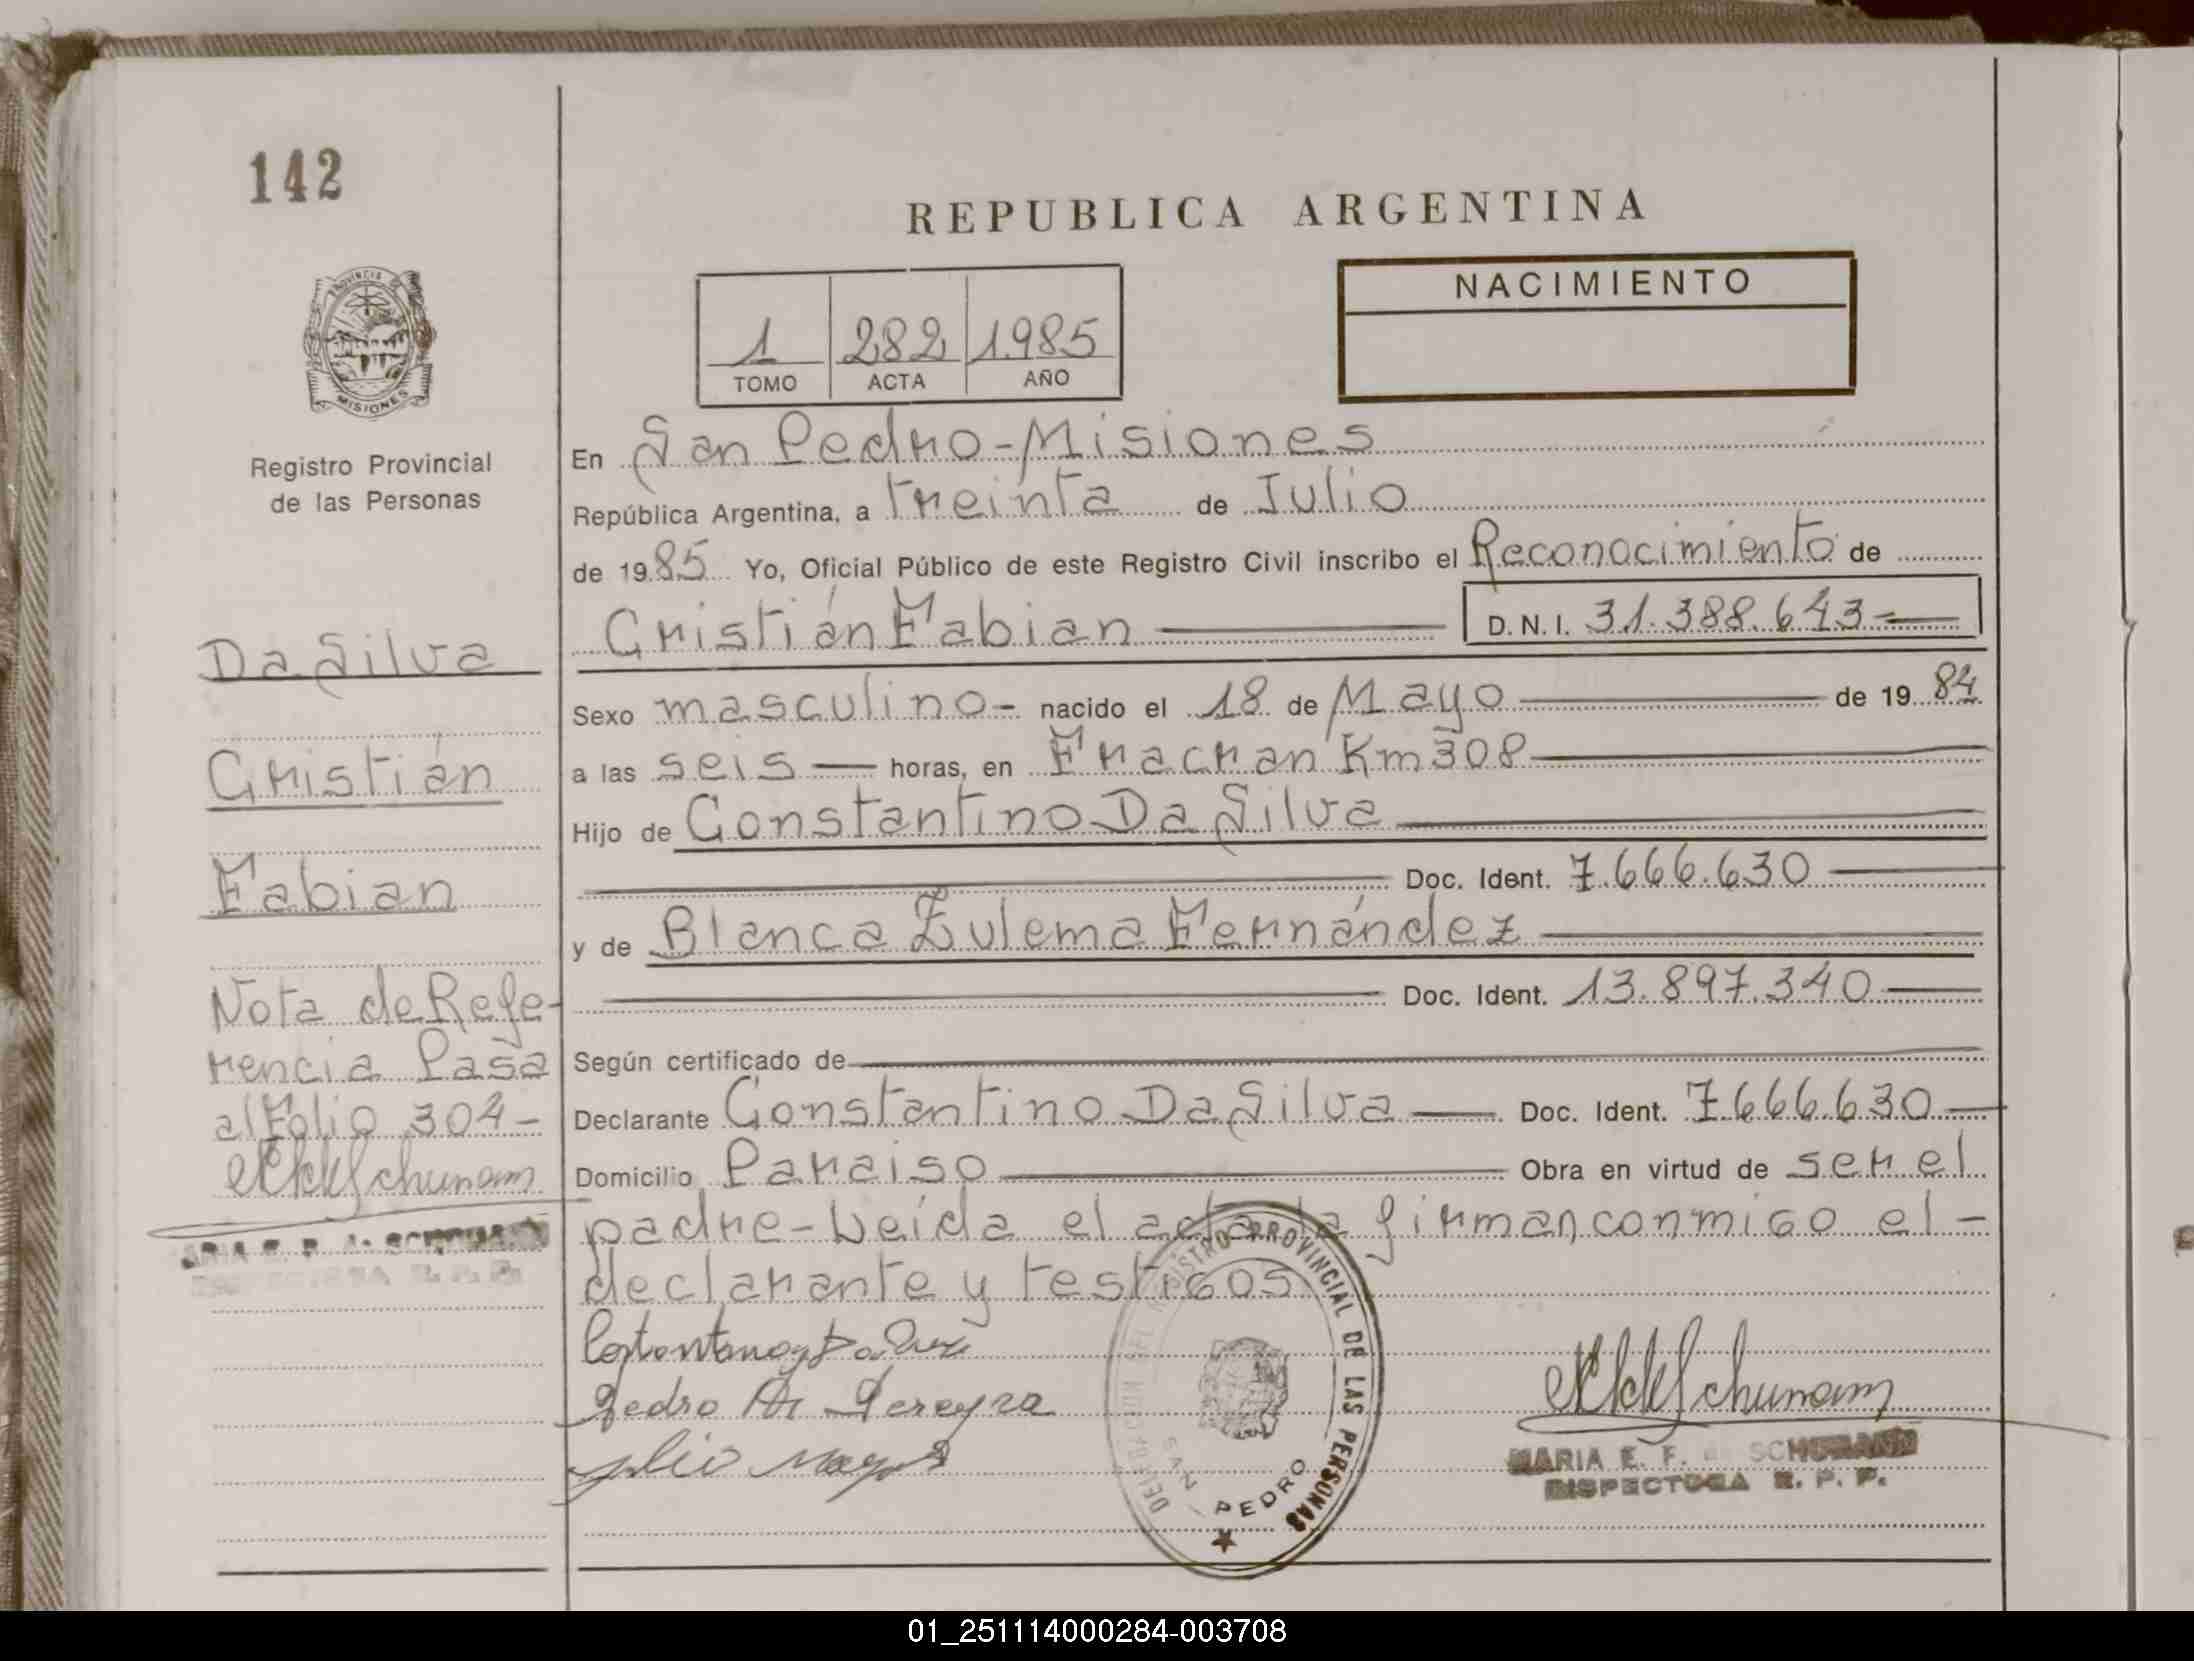 142
REPUBLICA ARGENTINA
PROVINCIA DE
MISIONES
Registro Provincial
de las Personas
1 282 1.985
TOMO ACTA AÑO
NACIMIENTO
En San Pedro - Misiones
República Argentina, a treinta de Julio
de 1985 Yo, Oficial Público de este Registro Civil inscribo el Reconocimiento de
Cristián Fabian D.N.I. 31.388.643
Sexo masculino - nacido el 18 de Mayo de 1984
a las seis horas, en Fracran Km 308
Hijo de Constantino Da Silva
Doc. Ident. 7.666.630
y de Blanca Zulema Fernández
Doc. Ident. 13.897.340
Según certificado de
Declarante Constantino Da Silva Doc. Ident. 7.666.630
Domicilio Paraiso Obra en virtud de ser el
padre - Leída el acta la firman conmigo el -
declarante y testigos
Da Silva
Cristián
Fabian
Nota de Refe-
rencia Pasa
al Folio 304 -
MARIA E. F. de SCHUMANN
INSPECTORA R. P. P.
Pedro A. Pereyra
DEL REGISTRO PROVINCIAL DE LAS PERSONAS
SAN PEDRO
MARIA E. F. de SCHUMANN
INSPECTORA R. P. P.
01_251114000284-003708